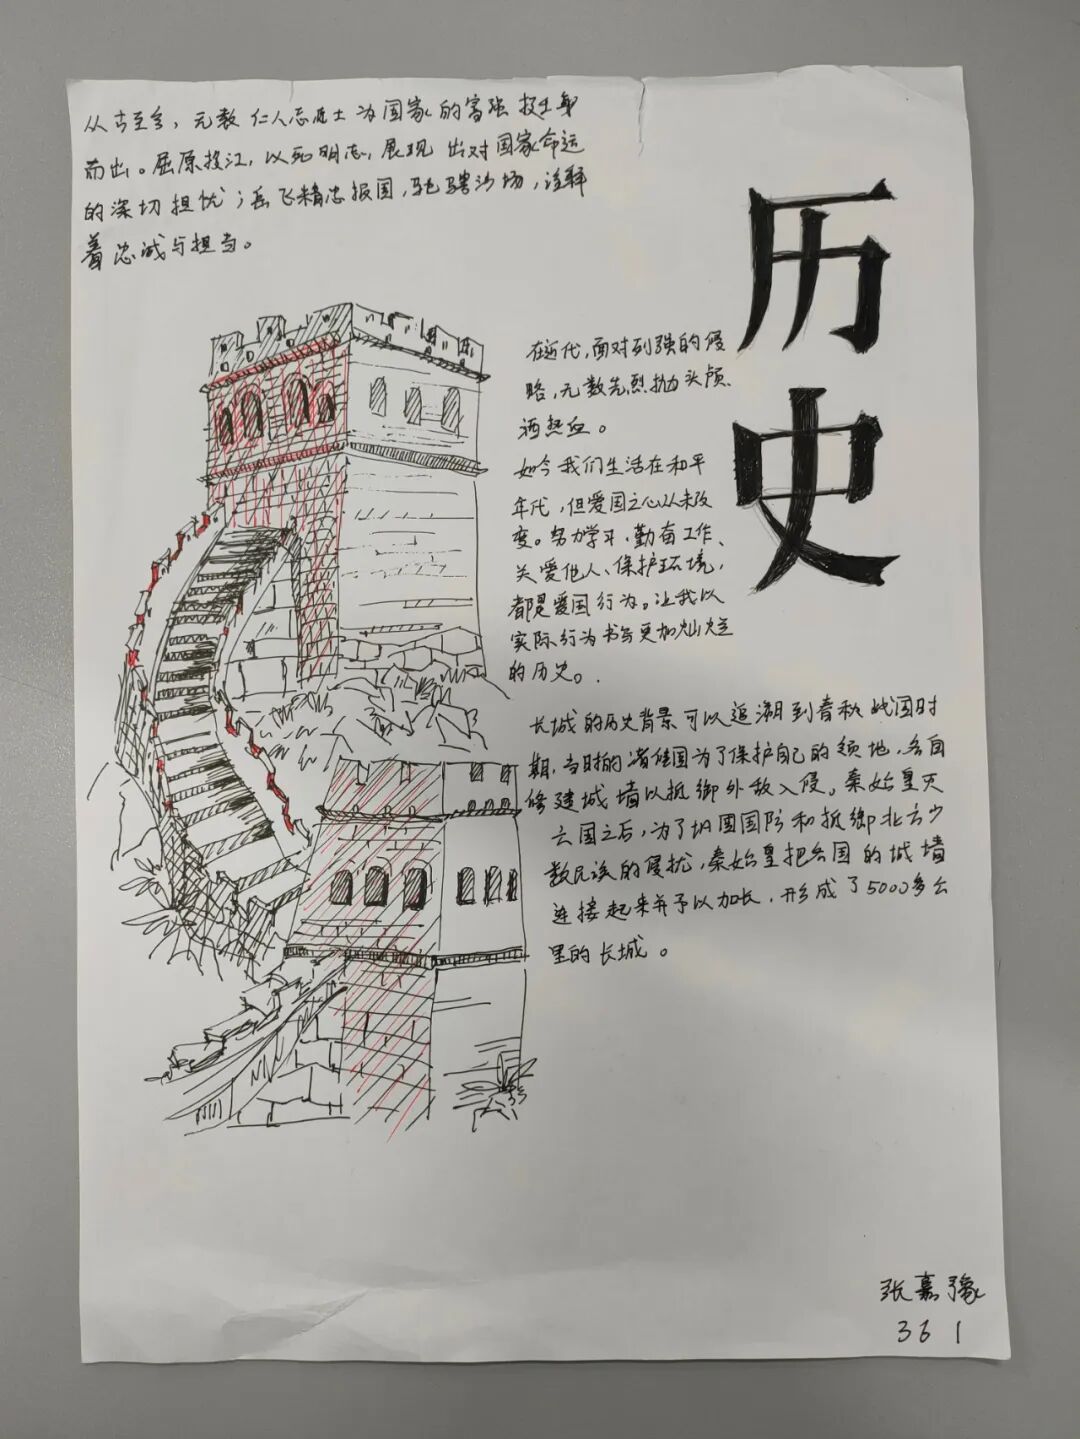 从古至今，无数仁人志士为国家的富强挺身
而出。屈原投江，以死明志，展现出对国家命运
的深切担忧；岳飞精忠报国，驰骋沙场，诠释
着忠诚与担当。
历
史
在近代，面对列强的侵
略，无数先烈抛头颅、
洒热血。
如今我们生活在和平
年代，但爱国之心从未改
变。努力学习、勤奋工作、
关爱他人、保护环境，
都是爱国行为。让我以
实际行为书写更加灿烂
的历史。
长城的历史背景可以追溯到春秋战国时
期，当时的诸侯国为了保护自己的领地，各自
修建城墙以抵御外敌入侵。秦始皇灭
六国之后，为了巩固国防和抵御北方少
数民族的侵扰，秦始皇把各国的城墙
连接起来并予以加长，形成了5000多公
里的长城。
张嘉豫
361